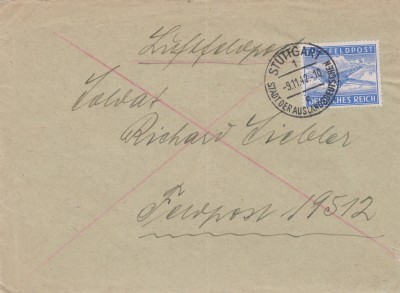 Luftfeldpost
LUFTFELDPOST
DEUTSCHES REICH
STUTTGART
1
-9.11.42.-10
STADT DER AUSLANDSDEUTSCHEN
Soldat
Richard Liebler
Feldpost 19512